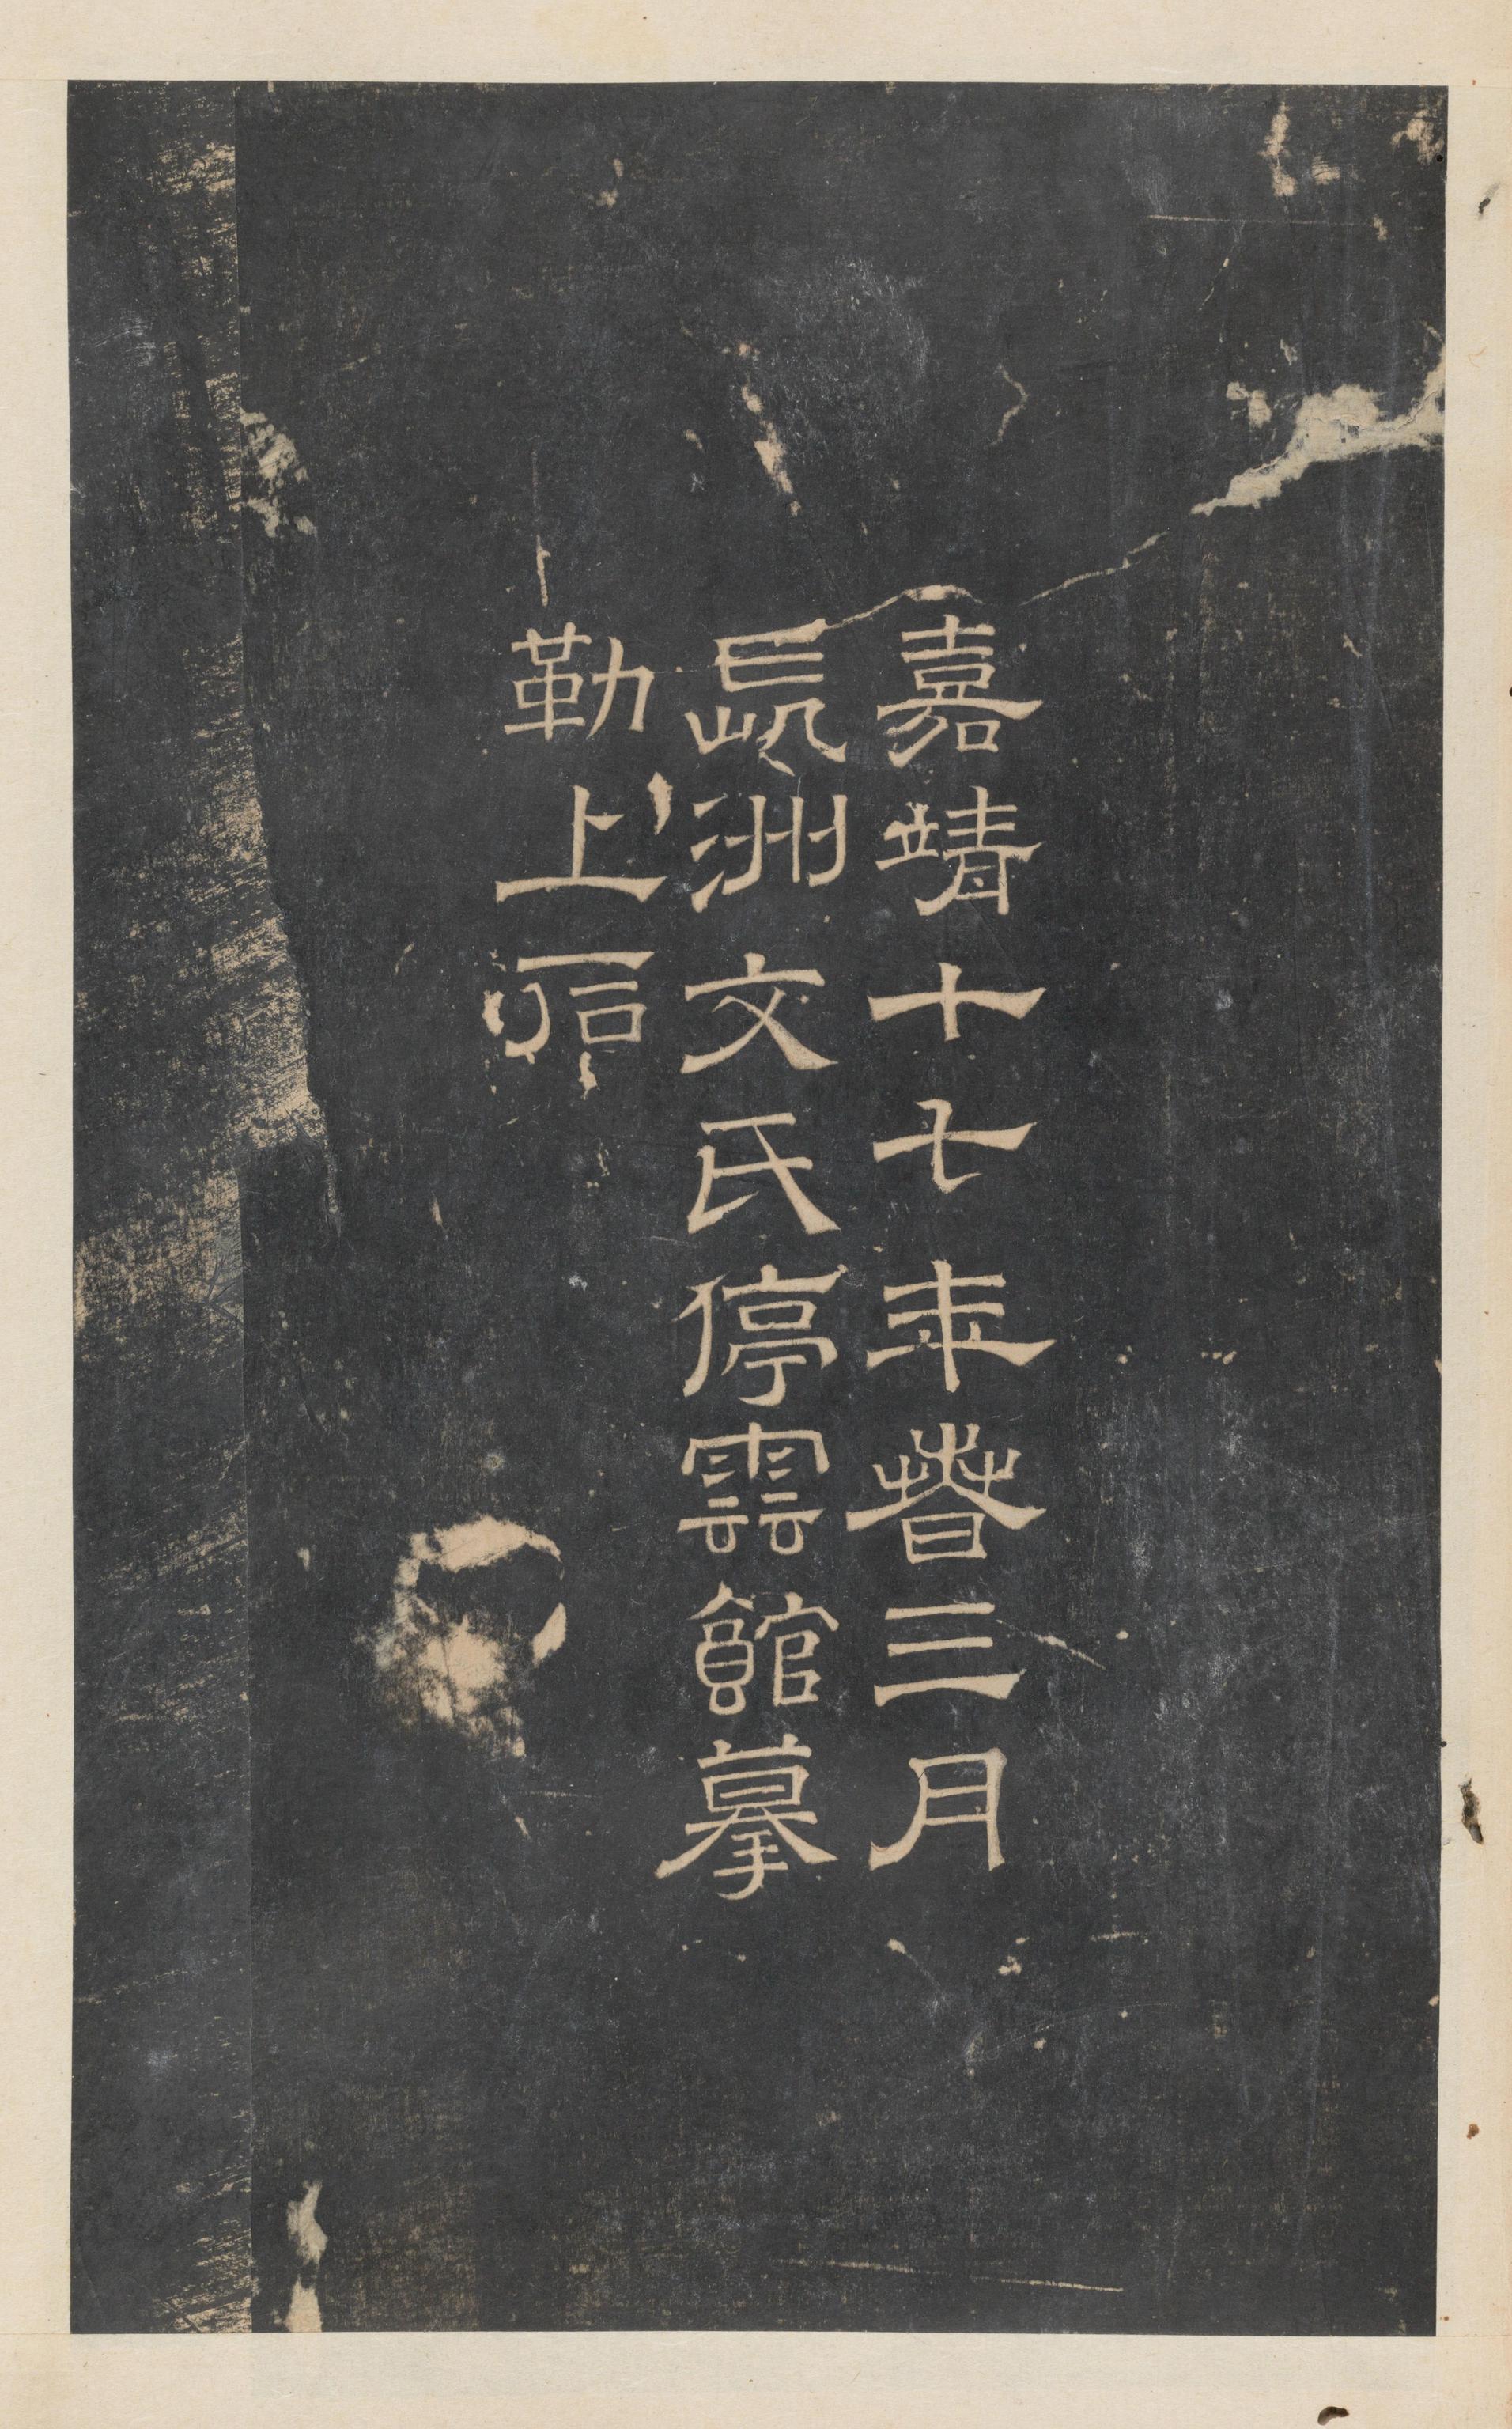 嘉靖十七年春三月
長洲文氏停雲館摹
勒上石